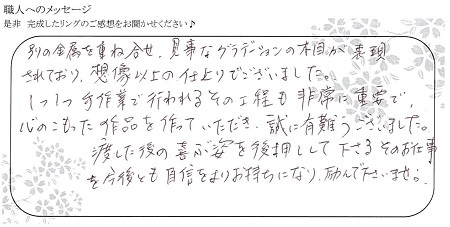 職人へのメッセージ
是非 完成したリングのご感想をお聞かせください♪
別の金属を重ね合せ、見事なグラデーションの木目が表現
されており、想像以上の仕上りでございました。
一つ一つ手作業で行われるその工程も非常に重要で、
心のこもった作品を作っていただき、誠に有難うございました。
渡した後の喜ぶ姿を後押しして下さるそのお仕事
を今後とも自信をよりお持ちになり、励んで下さいませ。